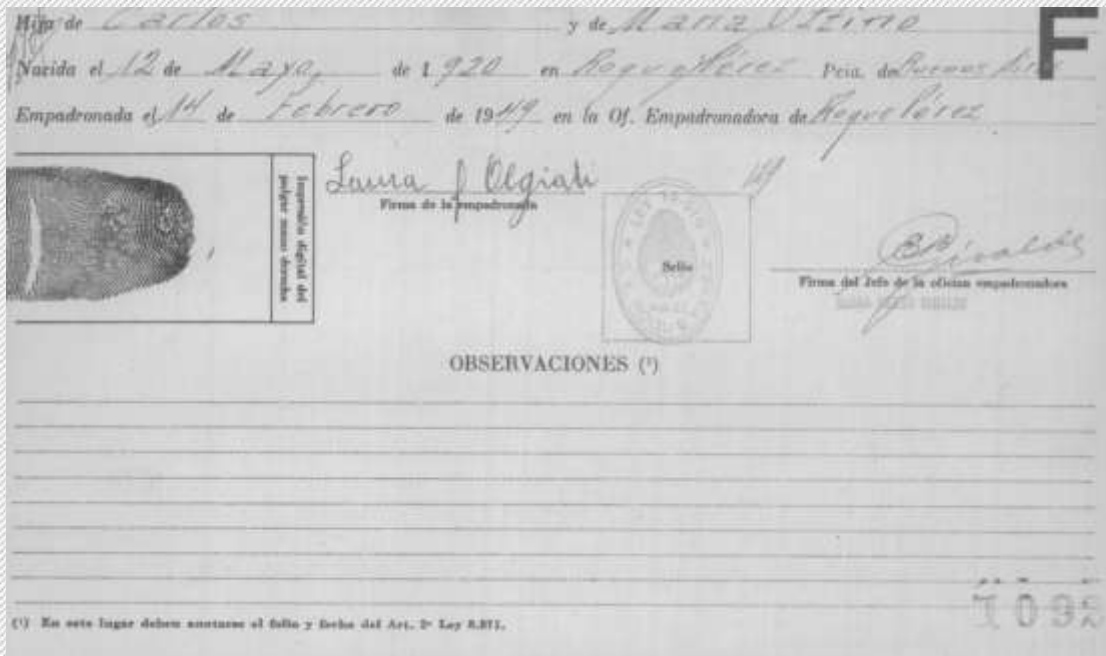 Hija de Carlos y de Maria Ultimo
Nacida el 12 de Mayo, de 1920 en Roque Pérez Pcia. de Buenos Aires
Empadronada el 14 de Febrero de 1949 en la Of. Empadronadora de Roque Pérez
F
Impresión digital del
pulgar mano derecha
Laura J Olgiati
Firma de la empadronada
LEY 13.010
Sello
Firma del Jefe de la oficina empadronadora
OBSERVACIONES (¹)
(¹) En este lugar deben anotarse el folio y fecha del Art. 2º Ley 8.871.
1092